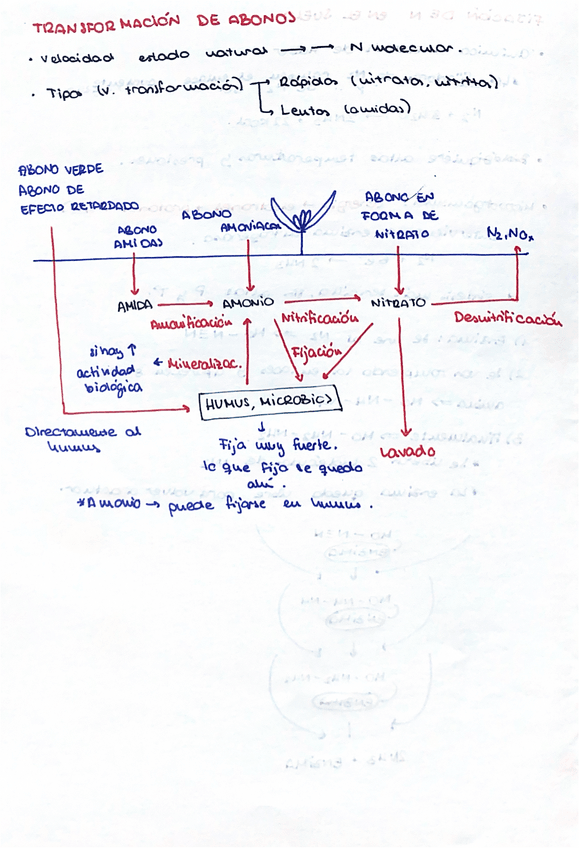 TRANSFORMACIÓN DE ABONOS
· Velocidad estado natural → → N. molecular.
· Tipos (v. transformación) → Rápidos (nitratos, nitritos)
↳ Lentos (amidas)
ABONO VERDE
ABONO DE
EFECTO RETARDADO
ABONO
AMIDAS
ABONO
AMONIACAL
ABONO EN
FORMA DE
NITRATO
N₂, NOₓ
AMIDA → AMONIO → NITRATO
Amonificación
Nitrificación
Desnitrificación
Fijación
si hay ↑
actividad
biológica
← Mineralizac.
HUMUS, MICROBIOS
Directamente al
humus
Fija muy fuerte.
lo que fija se queda
ahí.
Lavado
*Amonio → puede fijarse en humus.